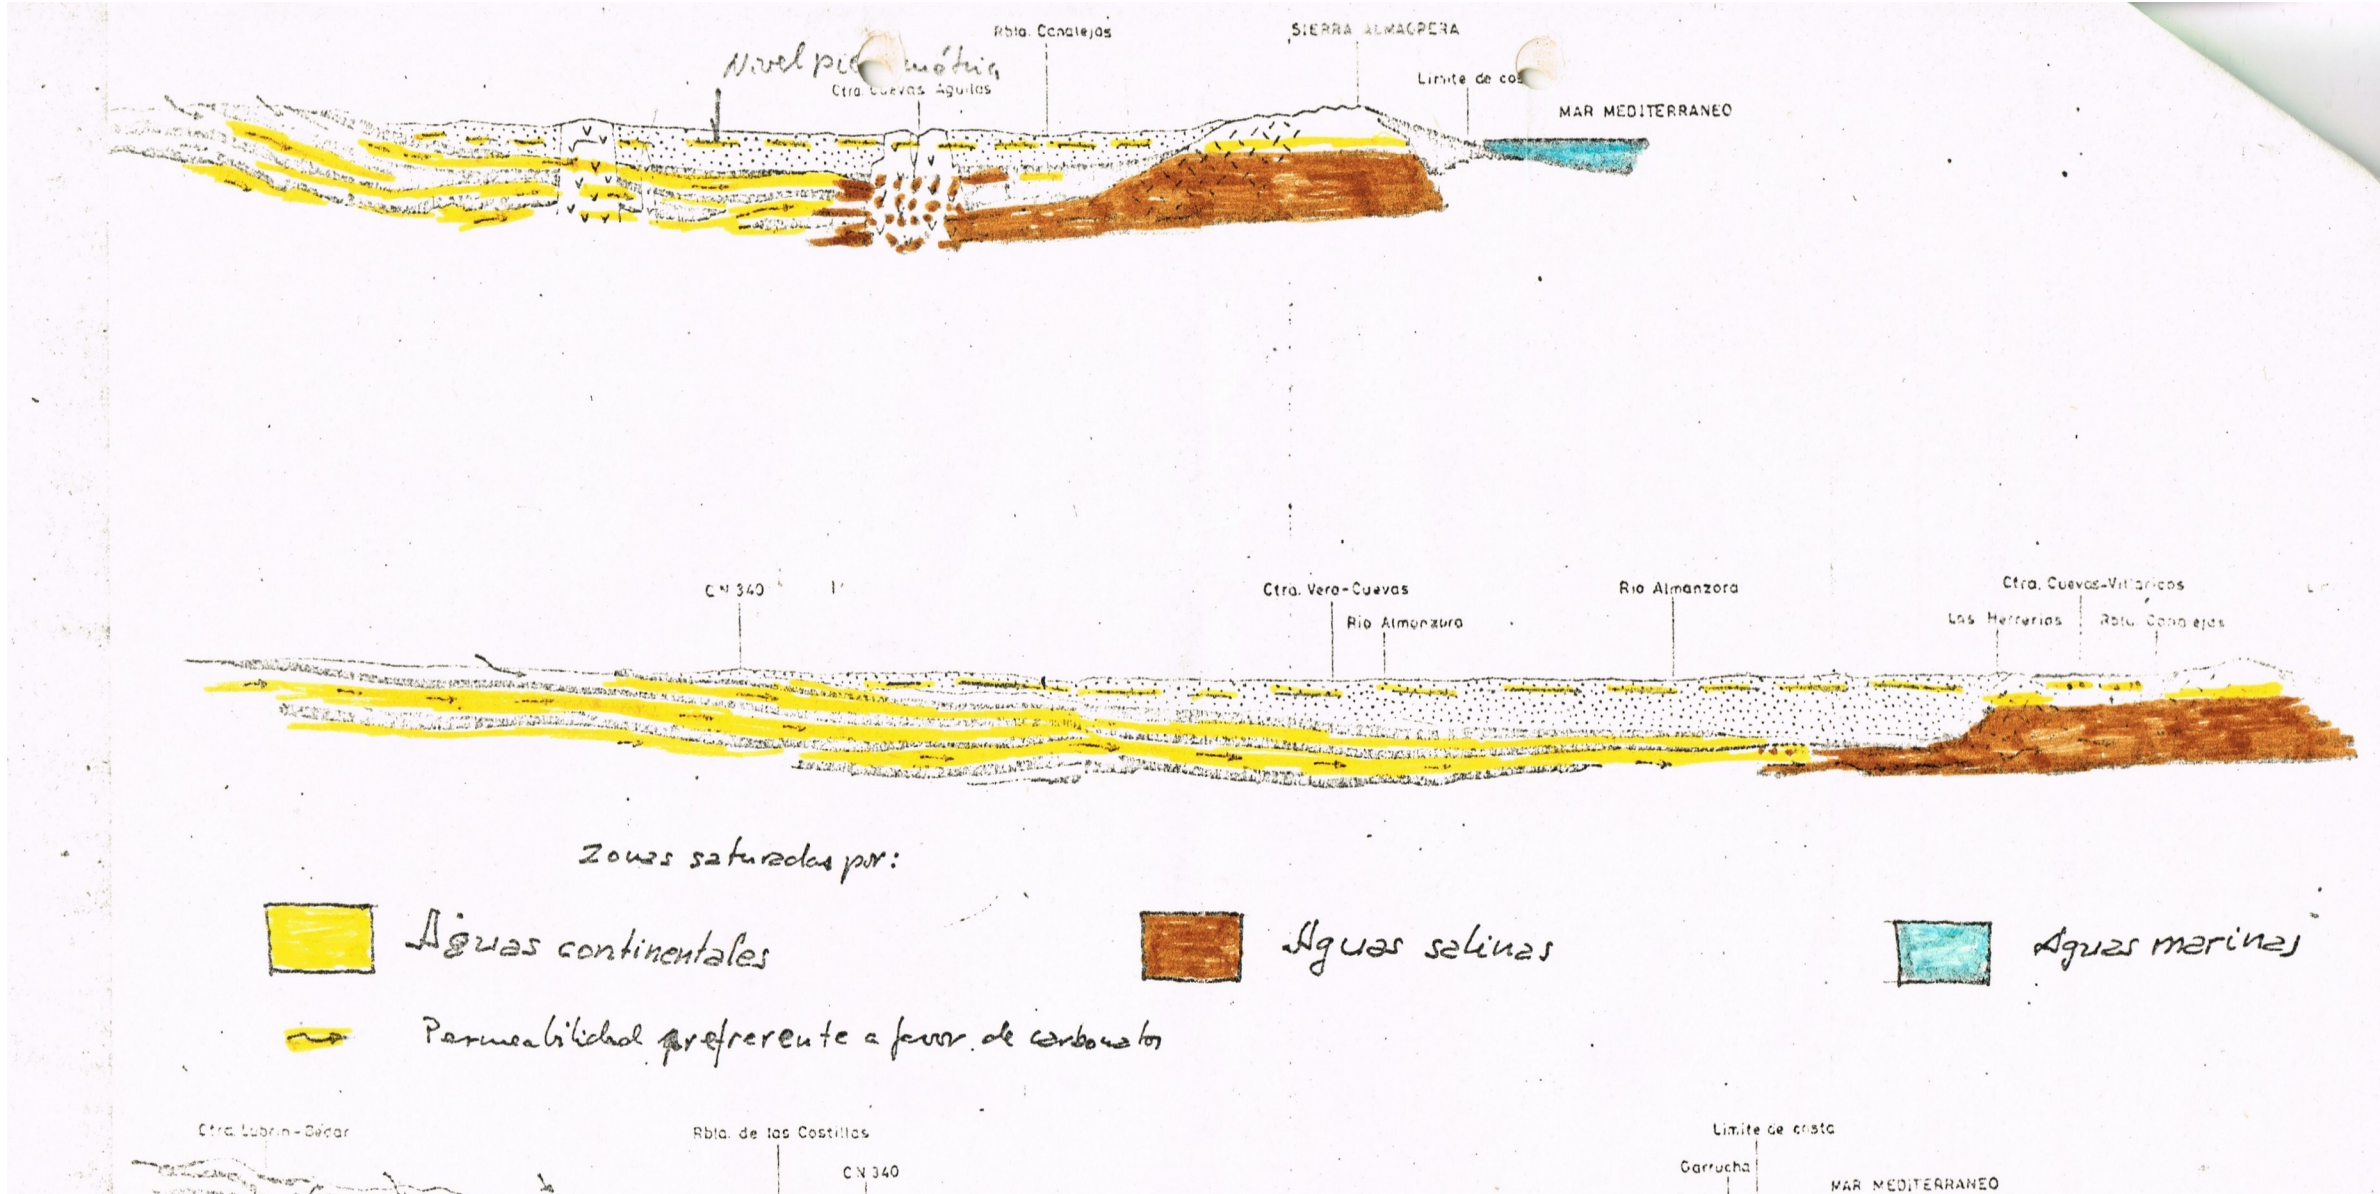 Rbla. Canalejas
SIERRA ALMAGRERA
Nivel pie mótria
Limite de cos
Ctra. Cuevas Aguilas
MAR MEDITERRANEO
CN 340
Ctra. Vera-Cuevas
Rio Almanzora
Ctra. Cuevas-Villaricos
Rio Almanzora
Las Herrerias
Rbla. Canalejas
Zonas saturadas por:
Aguas continentales
Aguas salinas
Aguas marinas
Permeabilidad prefrerente a favor de carbonatos
Ctra. Lubrin-Bédar
Rbla. de las Costillas
Limite de costa
CN 340
Garrucha
MAR MEDITERRANEO